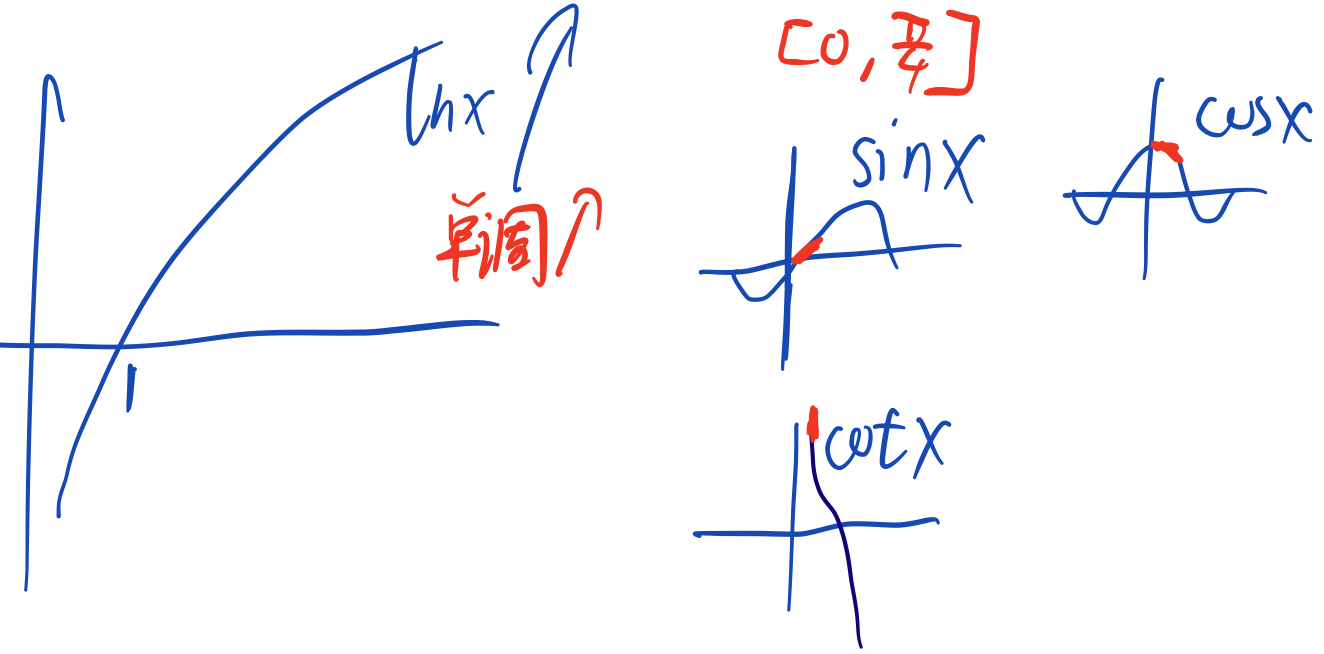 lnx
单调
1
[0, π/4]
sinx
cosx
cotx